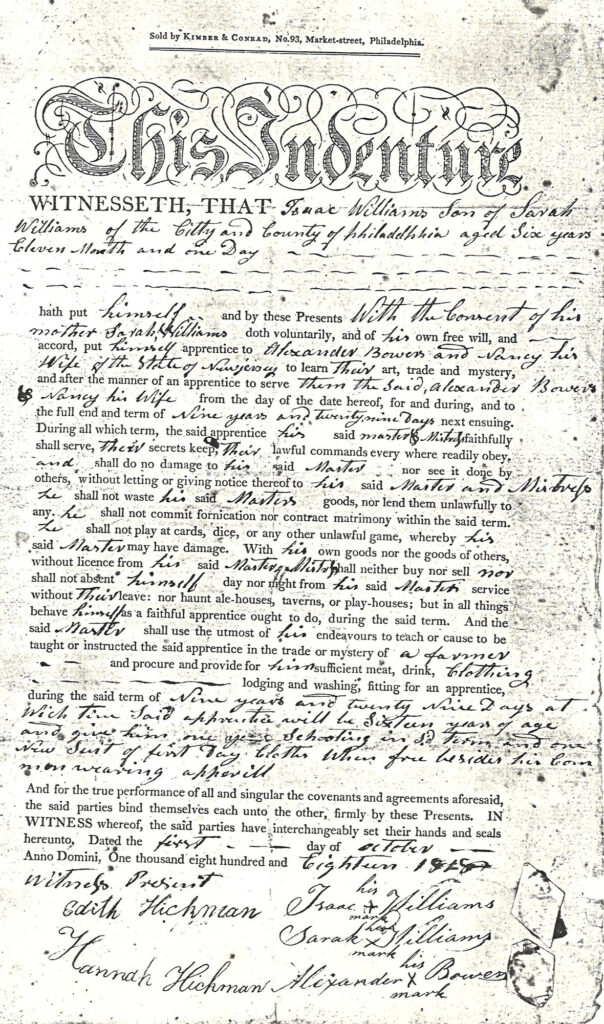 Sold by KIMBER & CONRAD, No. 93, Market-street, Philadelphia.
This Indenture
WITNESSETH, THAT Isaac Williams Son of Sarah
Williams of the Citty and County of Philadelphia aged Six years
Eleven Month and one Day
hath put himself and by these Presents With the Consent of his
mother Sarah Williams doth voluntarily, and of his own free will, and
accord, put himself apprentice to Alexander Bowers and Nancy his
Wife of the State of New jersey to learn their art, trade and mystery,
and after the manner of an apprentice to serve them the Said, Alexander Bowers
& Nancy his Wife from the day of the date hereof, for and during, and to
the full end and term of Nine years and twenty nine Days next ensuing.
During all which term, the said apprentice his said master & Mistress faithfully
shall serve, their secrets keep, their lawful commands every where readily obey,
and shall do no damage to his said Master nor see it done by
others, without letting or giving notice thereof to his said Master and Mistress
he shall not waste his said Masters goods, nor lend them unlawfully to
any. he shall not commit fornication nor contract matrimony within the said term.
he shall not play at cards, dice, or any other unlawful game, whereby his
said Master may have damage. With his own goods nor the goods of others,
without licence from his said Master & Mistress shall neither buy nor sell nor
shall not absent himself day nor night from his said Masters service
without their leave: nor haunt ale-houses, taverns, or play-houses; but in all things
behave himself as a faithful apprentice ought to do, during the said term. And the
said Master shall use the utmost of his endeavours to teach or cause to be
taught or instructed the said apprentice in the trade or mystery of a farmer
and procure and provide for him sufficient meat, drink, Clothing
lodging and washing, fitting for an apprentice,
during the said term of Nine years and twenty Nine Days at
Wich time Said apprentice will be Sixteen years of age
and give him one year Schooling in Sd term and one
New Suit of first Day Cloths When free besides his Com
mon wearing apperill
And for the true performance of all and singular the covenants and agreements aforesaid,
the said parties bind themselves each unto the other, firmly by these Presents. IN
WITNESS whereof, the said parties have interchangeably set their hands and seals
hereunto. Dated the first day of october
Anno Domini, One thousand eight hundred and Eighteen 1818
Witness Present
his
Edith Hickman Isaac + Williams
mark
her
Sarah X Williams
mark
his
Hannah Hickman Alexander X Bowen
mark